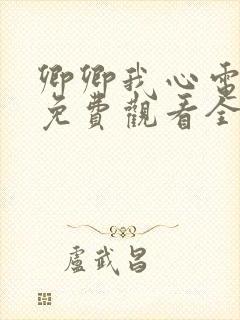 卿卿我心電
免費觀看全
盧武昌